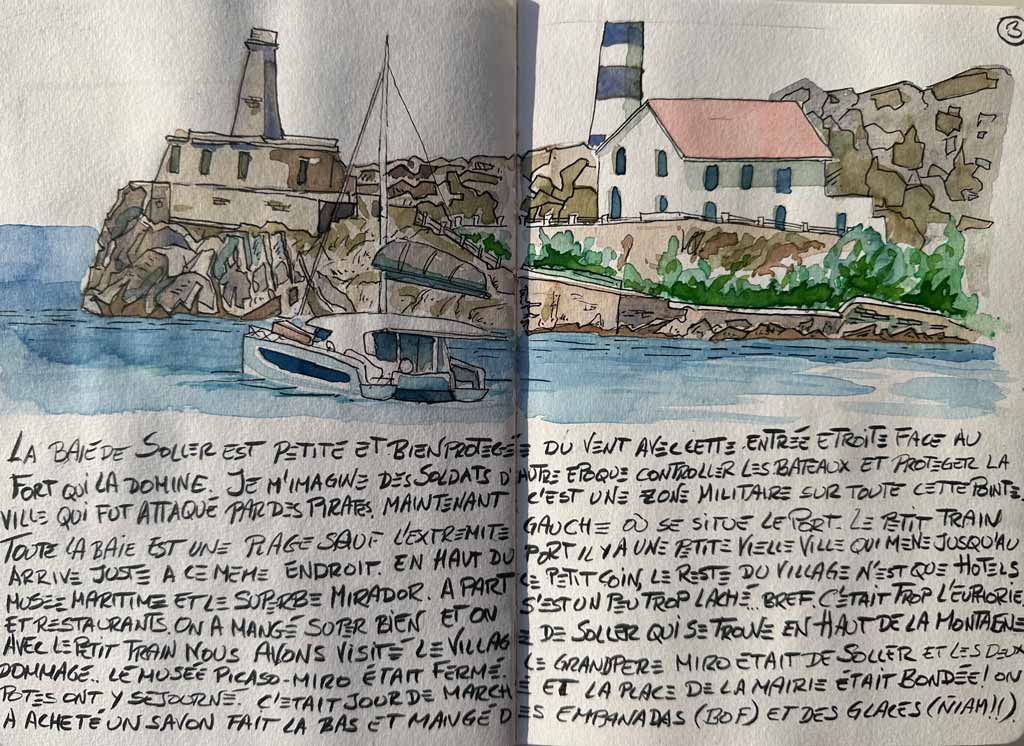 3
LA BAIE DE SOLLER EST PETITE ET BIEN PROTEGÉE DU VENT AVEC CETTE ENTRÉE ETROITE FACE AU
FORT QUI LA DOMINE. JE M'IMAGINE DES SOLDATS D'AUTRE EPOQUE CONTROLLER LES BATEAUX ET PROTEGER LA
VILLE QUI FUT ATTAQUÉ PAR DES PIRATES. MAINTENANT C'EST UNE ZONE MILITAIRE SUR TOUTE CETTE POINTE.
TOUTE LA BAIE EST UNE PLAGE SAUF L'EXTREMITE GAUCHE OÙ SE SITUE LE PORT. LE PETIT TRAIN
ARRIVE JUSTE A CE MEME ENDROIT. EN HAUT DU PORT IL Y A UNE PETITE VIELLE VILLE QUI MENE JUSQU'AU
MUSEE MARITIME ET LE SUPERBE MIRADOR. A PART CE PETIT COIN, LE RESTE DU VILLAGE N'EST QUE HOTELS
ET RESTAURANTS. ON A MANGÉ SUPER BIEN ET ON S'EST UN PEU TROP LACHÉ.. BREF. C'ÉTAIT TROP L'EUPHORIE.
AVEC LE PETIT TRAIN NOUS AVONS VISITÉ LE VILLAGE DE SOLLER QUI SE TROUVE EN HAUT DE LA MONTAGNE
DOMMAGE.. LE MUSÉE PICASO-MIRO ÉTAIT FERMÉ. LE GRANDPERE MIRO ETAIT DE SOLLER ET LES DEUX
POTES ONT Y SEJOURNÉ. C'ETAIT JOUR DE MARCHE ET LA PLACE DE LA MAIRIE ÉTAIT BONDÉE! ON
A ACHETÉ UN SAVON FAIT LA BAS ET MANGÉ DES EMPANADAS (BOF) ET DES GLACES (ÑIAM!!).